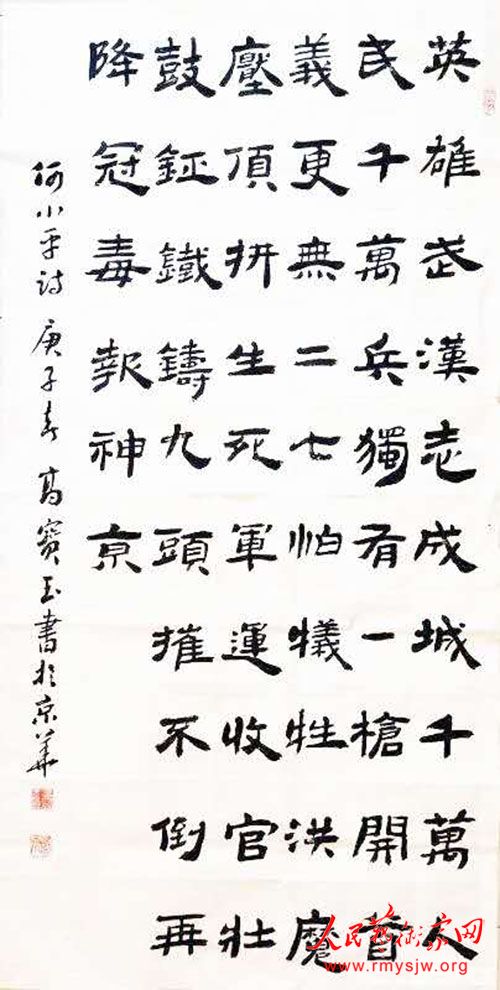 英雄武漢志成城千萬人
民千萬兵獨有一槍開首
義更無二七怕犧牲洪魔
壓頂拼生死軍運收官壯
鼓鉦鐵鑄九頭摧不倒再
降冠毒報神京
何小平诗 庚子春 高寶玉書於京華
人民藝術家网
www.rmysjw.org